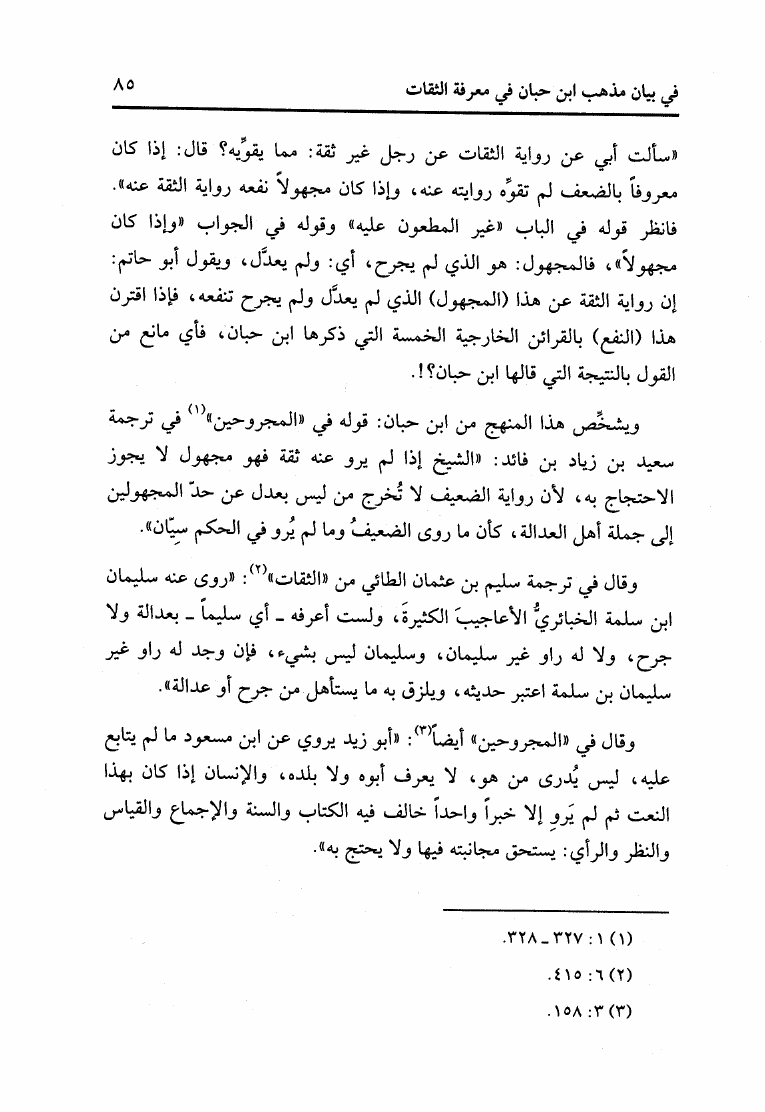 في بيان مذهب ابن حبان في معرفة الثقات ٨٥
«سألت أبي عن رواية الثقات عن رجل غير ثقة: مما يقوِّيه؟ قال: إذا كان
معروفاً بالضعف لم تقوِّه روايته عنه، وإذا كان مجهولاً نفعه رواية الثقة عنه».
فانظر قوله في الباب «غير المطعون عليه» وقوله في الجواب «وإذا كان
مجهولاً»، فالمجهول: هو الذي لم يجرح، أي: ولم يعدَّل، ويقول أبو حاتم:
إن رواية الثقة عن هذا (المجهول) الذي لم يعدَّل ولم يجرح تنفعه، فإذا اقترن
هذا (النفع) بالقرائن الخارجية الخمسة التي ذكرها ابن حبان، فأي مانع من
القول بالنتيجة التي قالها ابن حبان؟!.
ويشخِّص هذا المنهج من ابن حبان: قوله في «المجروحين»(١) في ترجمة
سعيد بن زياد بن فائد: «الشيخ إذا لم يرو عنه ثقة فهو مجهول لا يجوز
الاحتجاج به، لأن رواية الضعيف لا تُخرج من ليس بعدل عن حدّ المجهولين
إلى جملة أهل العدالة، كأن ما روى الضعيفُ وما لم يُرو في الحكم سيّان».
وقال في ترجمة سليم بن عثمان الطائي من «الثقات»(٢): «روى عنه سليمان
ابن سلمة الخبائريُّ الأعاجيبَ الكثيرةَ، ولست أعرفه ـ أي سليماً ـ بعدالة ولا
جرح، ولا له راو غير سليمان، وسليمان ليس بشيء، فإن وجد له راو غير
سليمان بن سلمة اعتبر حديثه، ويلزق به ما يستأهل من جرح أو عدالة».
وقال في «المجروحين» أيضاً(٣): «أبو زيد يروي عن ابن مسعود ما لم يتابع
عليه، ليس يُدرى من هو، لا يعرف أبوه ولا بلده، والإنسان إذا كان بهذا
النعت ثم لم يَروِ إلا خبراً واحداً خالف فيه الكتاب والسنة والإجماع والقياس
والنظر والرأي: يستحق مجانبته فيها ولا يحتج به».
(١) ١: ٣٢٧ ـ ٣٢٨.
(٢) ٦: ٤١٥.
(٣) ٣: ١٥٨.